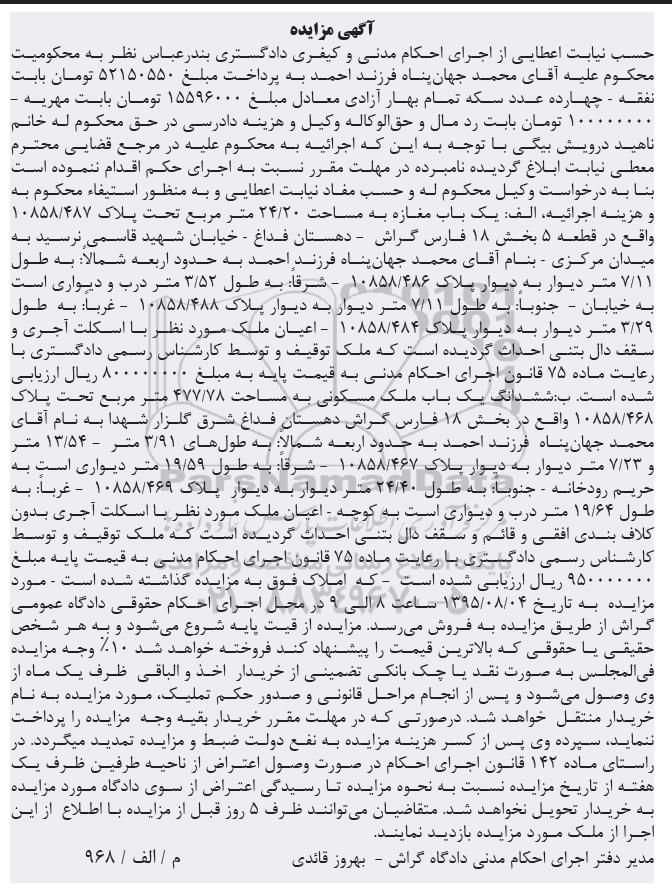 آگهی مزایده
حسب نیابت اعطایی از اجرای احکام مدنی و کیفری دادگستری بندرعباس نظر به محکومیت
محکوم علیه آقای محمد جهان‌پناه فرزند احمد به پرداخت مبلغ ۵۲۱۵۰۵۵۰ تومان بابت
نفقه - چهارده عدد سکه تمام بهار آزادی معادل مبلغ ۱۵۵۹۶۰۰۰ تومان بابت مهریه -
۱۰۰۰۰۰۰۰۰ تومان بابت رد مال و حق‌الوکاله وکیل و هزینه دادرسی در حق محکوم له خانم
ناهید درویش بیگی با توجه به این که اجرائیه به محکوم علیه در مرجع قضایی محترم
معطی نیابت ابلاغ گردیده نامبرده در مهلت مقرر نسبت به اجرای حکم اقدام ننموده است
بنا به درخواست وکیل محکوم له و حسب مفاد نیابت اعطایی و به منظور استیفاء محکوم به
و هزینه اجرائیه، الف: یک باب مغازه به مساحت ۲۴/۲۰ متر مربع تحت پلاک ۱۰۸۵۸/۴۸۷
واقع در قطعه ۵ بخش ۱۸ فارس گراش - دهستان فداغ - خیابان شهید قاسمی نرسید به
میدان مرکزی - بنام آقای محمد جهان‌پناه فرزند احمد به حدود اربعه شمالاً: به طول
۷/۱۱ متر دیوار به دیوار پلاک ۱۰۸۵۸/۴۸۶ - شرقاً: به طول ۳/۵۲ متر درب و دیواری است
به خیابان - جنوباً: به طول ۷/۱۱ متر دیوار به دیوار پلاک ۱۰۸۵۸/۴۸۸ - غرباً: به طول
۳/۲۹ متر دیوار به دیوار پلاک ۱۰۸۵۸/۴۸۴ - اعیان ملک مورد نظر با اسکلت آجری و
سقف دال بتنی احداث گردیده است که ملک توقیف و توسط کارشناس رسمی دادگستری با
رعایت ماده ۷۵ قانون اجرای احکام مدنی به قیمت پایه به مبلغ ۸۰۰۰۰۰۰۰۰ ریال ارزیابی
شده است. ب:ششدانگ یک باب ملک مسکونی به مساحت ۴۷۷/۷۸ متر مربع تحت پلاک
۱۰۸۵۸/۴۶۸ واقع در بخش ۱۸ فارس گراش دهستان فداغ شرق گلزار شهدا به نام آقای
محمد جهان‌پناه فرزند احمد به حدود اربعه شمالاً: به طول‌های ۳/۹۱ متر - ۱۳/۵۴ متر
و ۷/۲۳ متر دیوار به دیوار پلاک ۱۰۸۵۸/۴۶۷ - شرقاً: به طول ۱۹/۵۹ متر دیواری است به
حریم رودخانه - جنوباً: به طول ۲۴/۴۰ متر دیوار به دیوار پلاک ۱۰۸۵۸/۴۶۹ - غرباً: به
طول ۱۹/۶۴ متر درب و دیواری است به کوچه - اعیان ملک مورد نظر با اسکلت آجری بدون
کلاف بندی افقی و قائم و سقف دال بتنی احداث گردیده است که ملک توقیف و توسط
کارشناس رسمی دادگستری با رعایت ماده ۷۵ قانون اجرای احکام مدنی به قیمت پایه مبلغ
۹۵۰۰۰۰۰۰۰ ریال ارزیابی شده است - که املاک فوق به مزایده گذاشته شده است - مورد
مزایده به تاریخ ۱۳۹۵/۰۸/۰۴ ساعت ۸ الی ۹ در محل اجرای احکام حقوقی دادگاه عمومی
گراش از طریق مزایده به فروش می‌رسد. مزایده از قیت پایه شروع می‌شود و به هر شخص
حقیقی یا حقوقی که بالاترین قیمت را پیشنهاد کند فروخته خواهد شد ۱۰٪ وجه مزایده
فی‌المجلس به صورت نقد یا چک بانکی تضمینی از خریدار اخذ و الباقی ظرف یک ماه از
وی وصول می‌شود و پس از انجام مراحل قانونی و صدور حکم تملیک، مورد مزایده به نام
خریدار منتقل خواهد شد. درصورتی که در مهلت مقرر خریدار بقیه وجه مزایده را پرداخت
ننماید، سپرده وی پس از کسر هزینه مزایده به نفع دولت ضبط و مزایده تمدید میگردد. در
راستای ماده ۱۴۲ قانون اجرای احکام در صورت وصول اعتراض از ناحیه طرفین ظرف یک
هفته از تاریخ مزایده نسبت به نحوه مزایده تا رسیدگی اعتراض از سوی دادگاه مورد مزایده
به خریدار تحویل نخواهد شد. متقاضیان می‌توانند ظرف ۵ روز قبل از مزایده با اطلاع از این
اجرا از ملک مورد مزایده بازدید نمایند.
مدیر دفتر اجرای احکام مدنی دادگاه گراش - بهروز قائدی م / الف / ۹۶۸
ParsNamadData